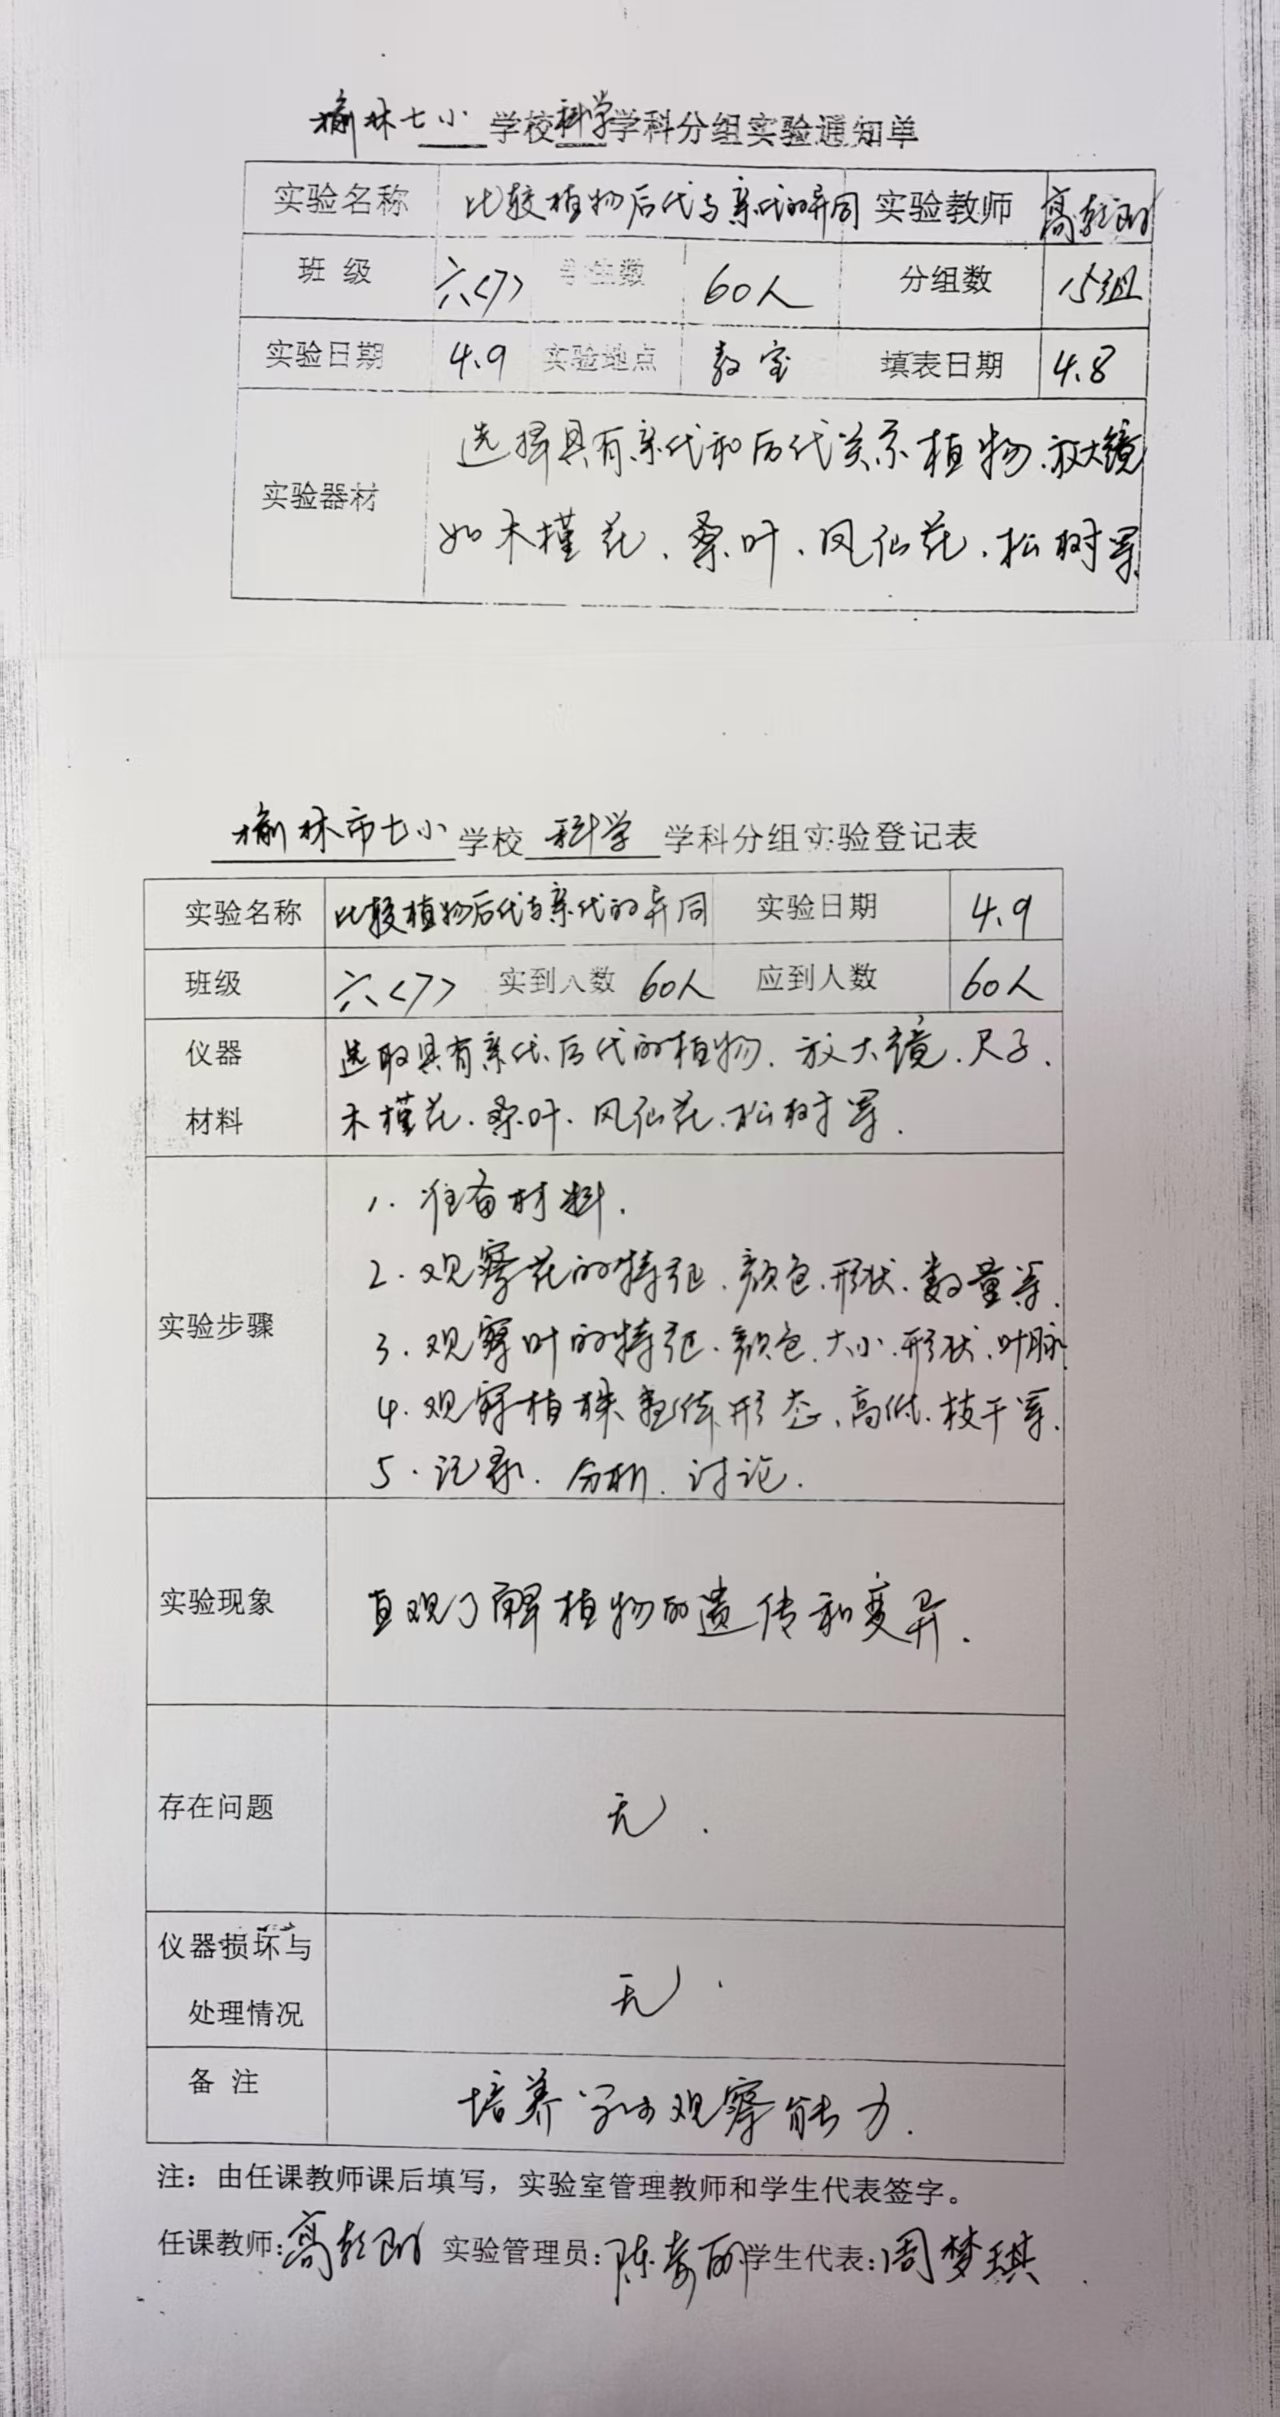 榆林七小学校科学学科分组实验通知单
实验名称 比较植物后代与亲代的异同 实验教师 高
班 级 六<7> 学生数 60人 分组数 15组
实验日期 4.9 实验地点 教室 填表日期 4.8
选择具有亲代和后代关系植物.放大镜
实验器材
如木槿花、桑叶、凤仙花、松树等
榆林市七小学校 科学 学科分组实验登记表
实验名称 比较植物后代与亲代的异同 实验日期 4.9
班级 六<7> 实到人数 60人 应到人数 60人
仪器 选取具有亲代、后代的植物、放大镜、尺子、
材料 木槿花、桑叶、凤仙花、松树等.
1. 准备材料.
2. 观察花的特征、颜色、形状、数量等.
实验步骤
3. 观察叶的特征、颜色、大小、形状、叶脉
4. 观察植株整体形态、高低、枝干等.
5. 记录、分析、讨论.
实验现象 直观了解植物的遗传和变异.
存在问题 无.
仪器损坏与
处理情况 无.
备 注 培养学生观察能力.
注：由任课教师课后填写，实验室管理教师和学生代表签字。
任课教师:高 实验管理员:陈 丽 学生代表:周梦琪